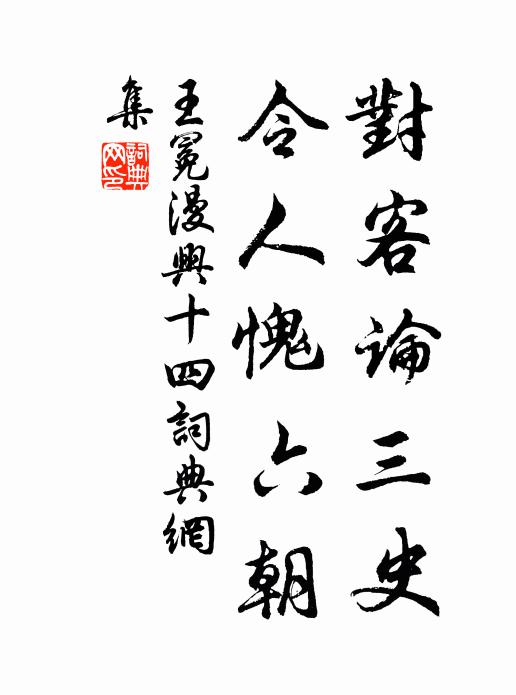 對客論三史
令人愧六朝
王冕漫興十四詞典網
集
詞典
网印